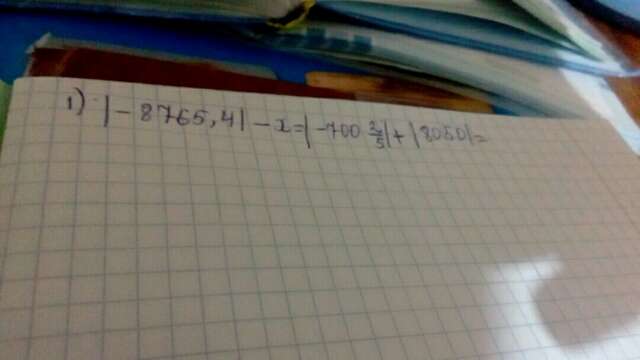 1) |-8765,4| - x = |-700 2/5| + |8050| =